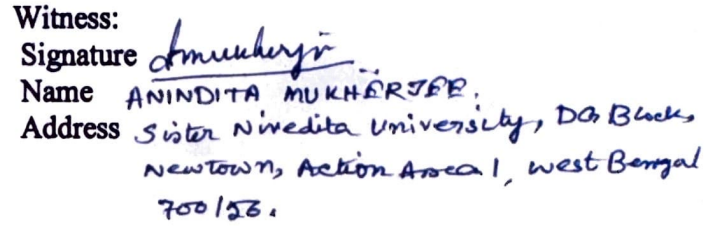 Witness:
Signature Amukherji
Name ANINDITA MUKHERJEE.
Address Sister Nivedita University, DG Block,
Newtown, Action Area 1, West Bengal
700156.